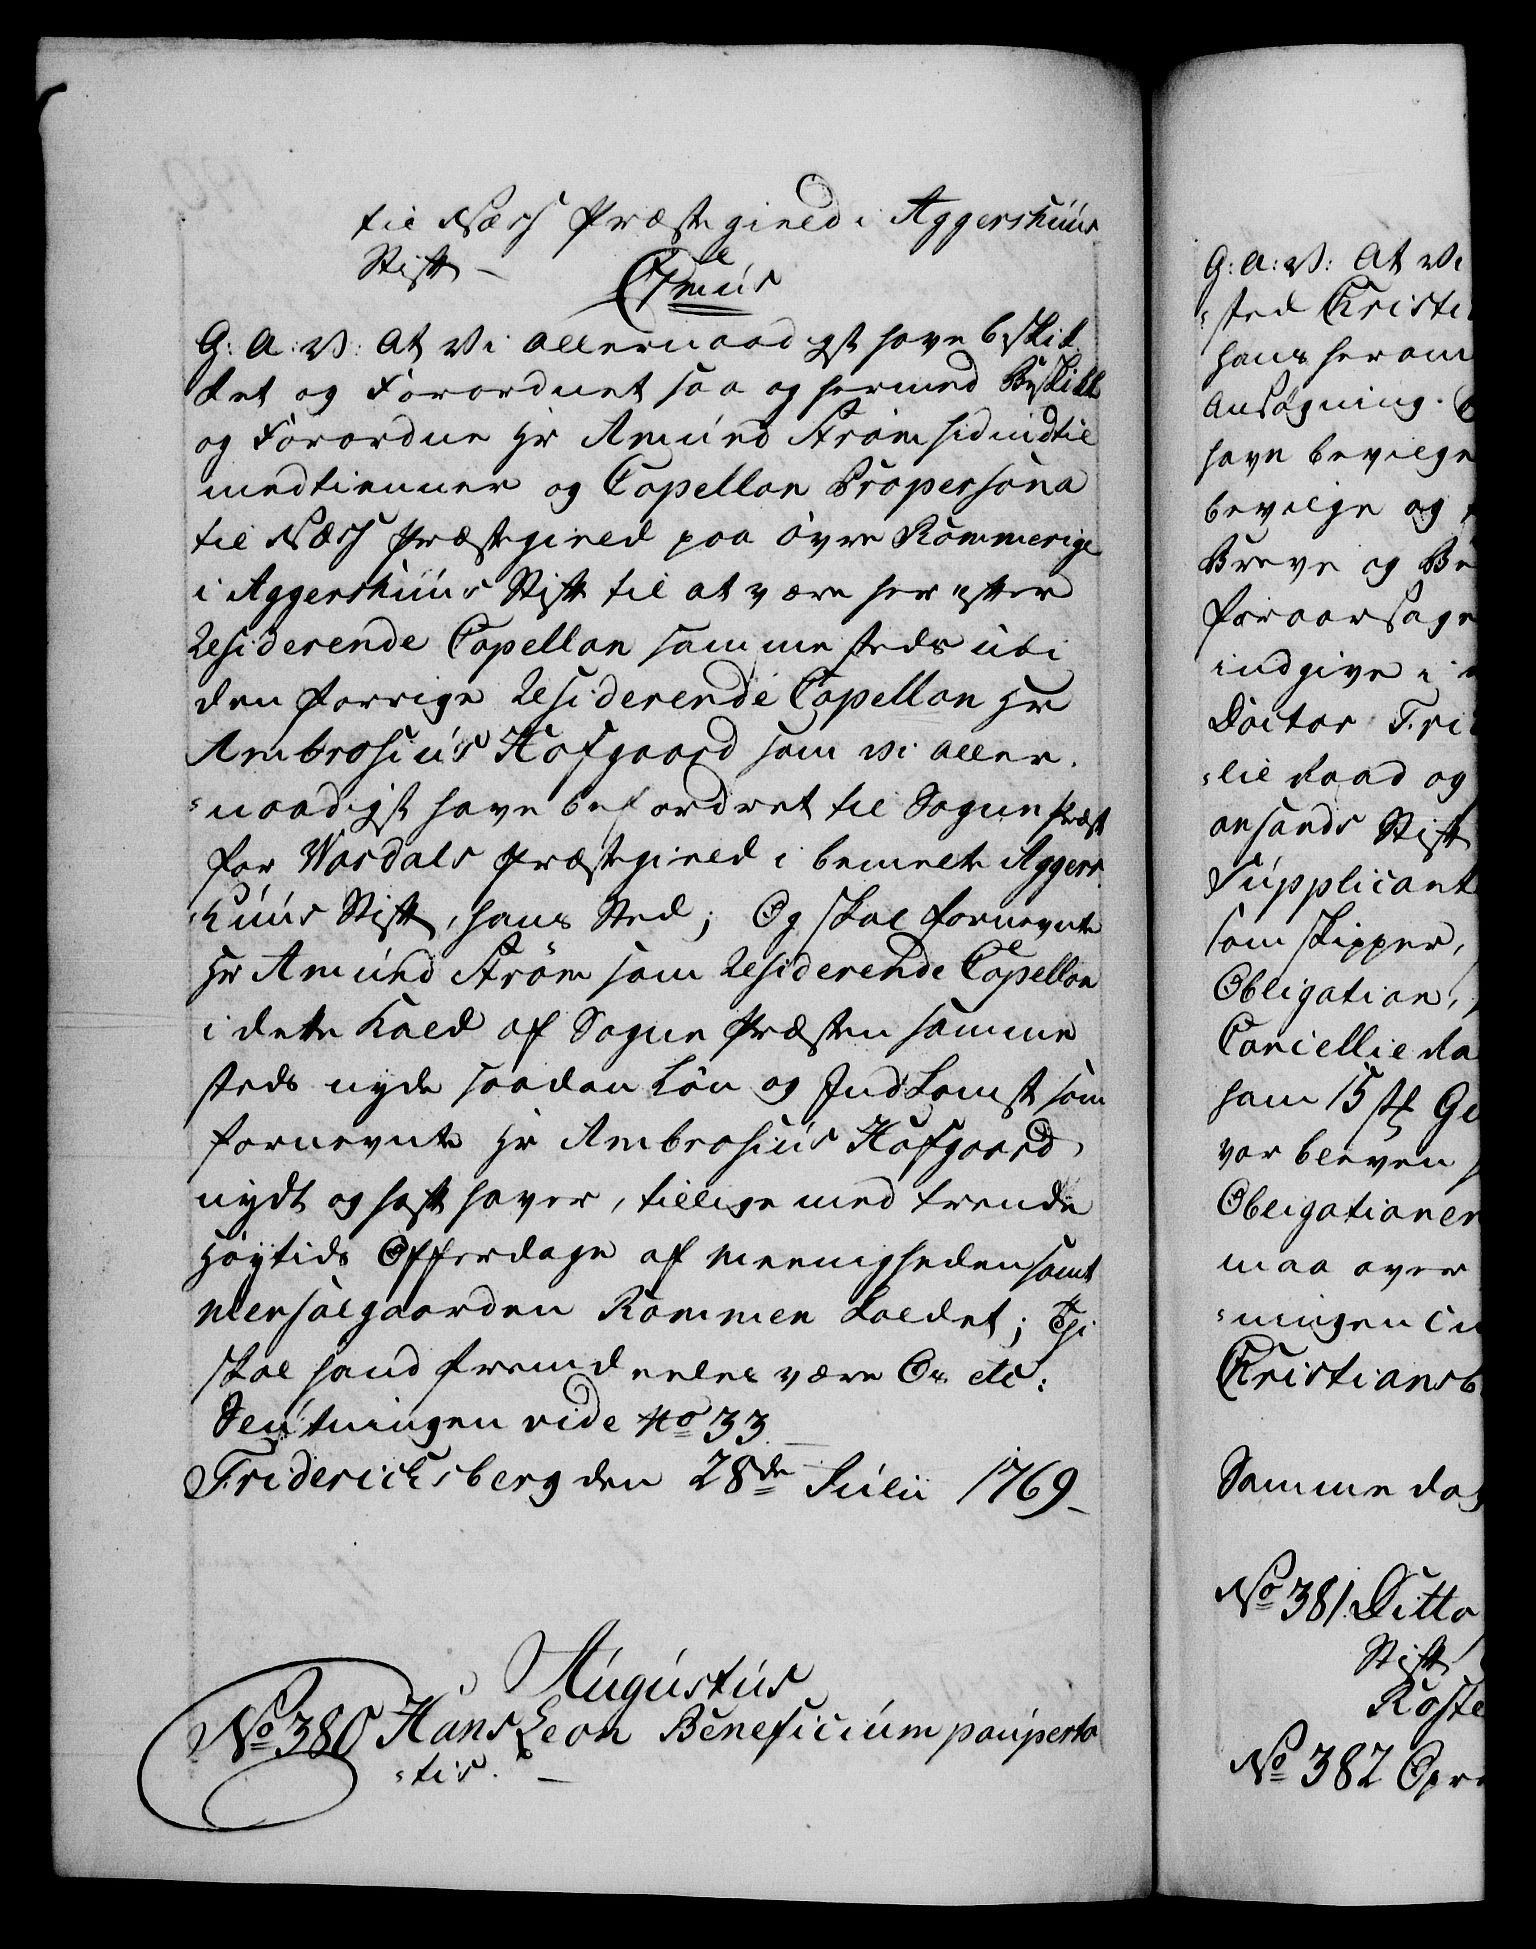 til Næss Præstegield i Aggershuus
Stift –
Csmus
G: A: V: At Vi allernaadigst have beskik
ket og Forordnet saa og hermed Beskikke
og Forordne Hr Amund Strøm hid indtil
medtienner og Capellan Propersona
til Næss Præstegield paa Øvre Rommerige
i Aggershuus Stift til at være her efter
Residerende Capellan sammesteds udi
den forrige Residerende Capellan Hr
Ambrosius Hofgaard som vi aller-
=naadigst have befordret til Sogne Præst
for Wardals Præstegield i bemelte Aggers
huus Stift, hans Sted; Og skal fornevnte
Hr Amund Strøm som Residerende Capellan
i dette Kald af Sogne Præsten samme
steds nyde saadan Løn og Indkomst som
fornevnte Hr Ambrosius Hofgaard
nydt og haft haver, tillige med trende
Høytids Offerdage af Meenigheden samt
Mensalgaarden Rommen kaldet; Thi
skal hand fremdeeles være Os etc:
Slutningen vide No 33
Fridericksberg den 28de Julii 1769 –
Augustus
No 380 Hans Leon Beneficium pauperta
=tis. –
G: A: V: At Vi
=sted Christi
hans herom
Ansøgning.
have bevilge
bevilge og
Breve og Be
foraarsage
indgive i
Doctor Fri
=lie Raad og
ansands Stift
Supplicant
som skipper,
Obligation,
Cancellie Ra
ham 15 s Ge
var bleven
Obligationer
maa over
=ningen
Christiansb
Samme dag
No 381. Ditto
Stift
Koste
No 382 Opre